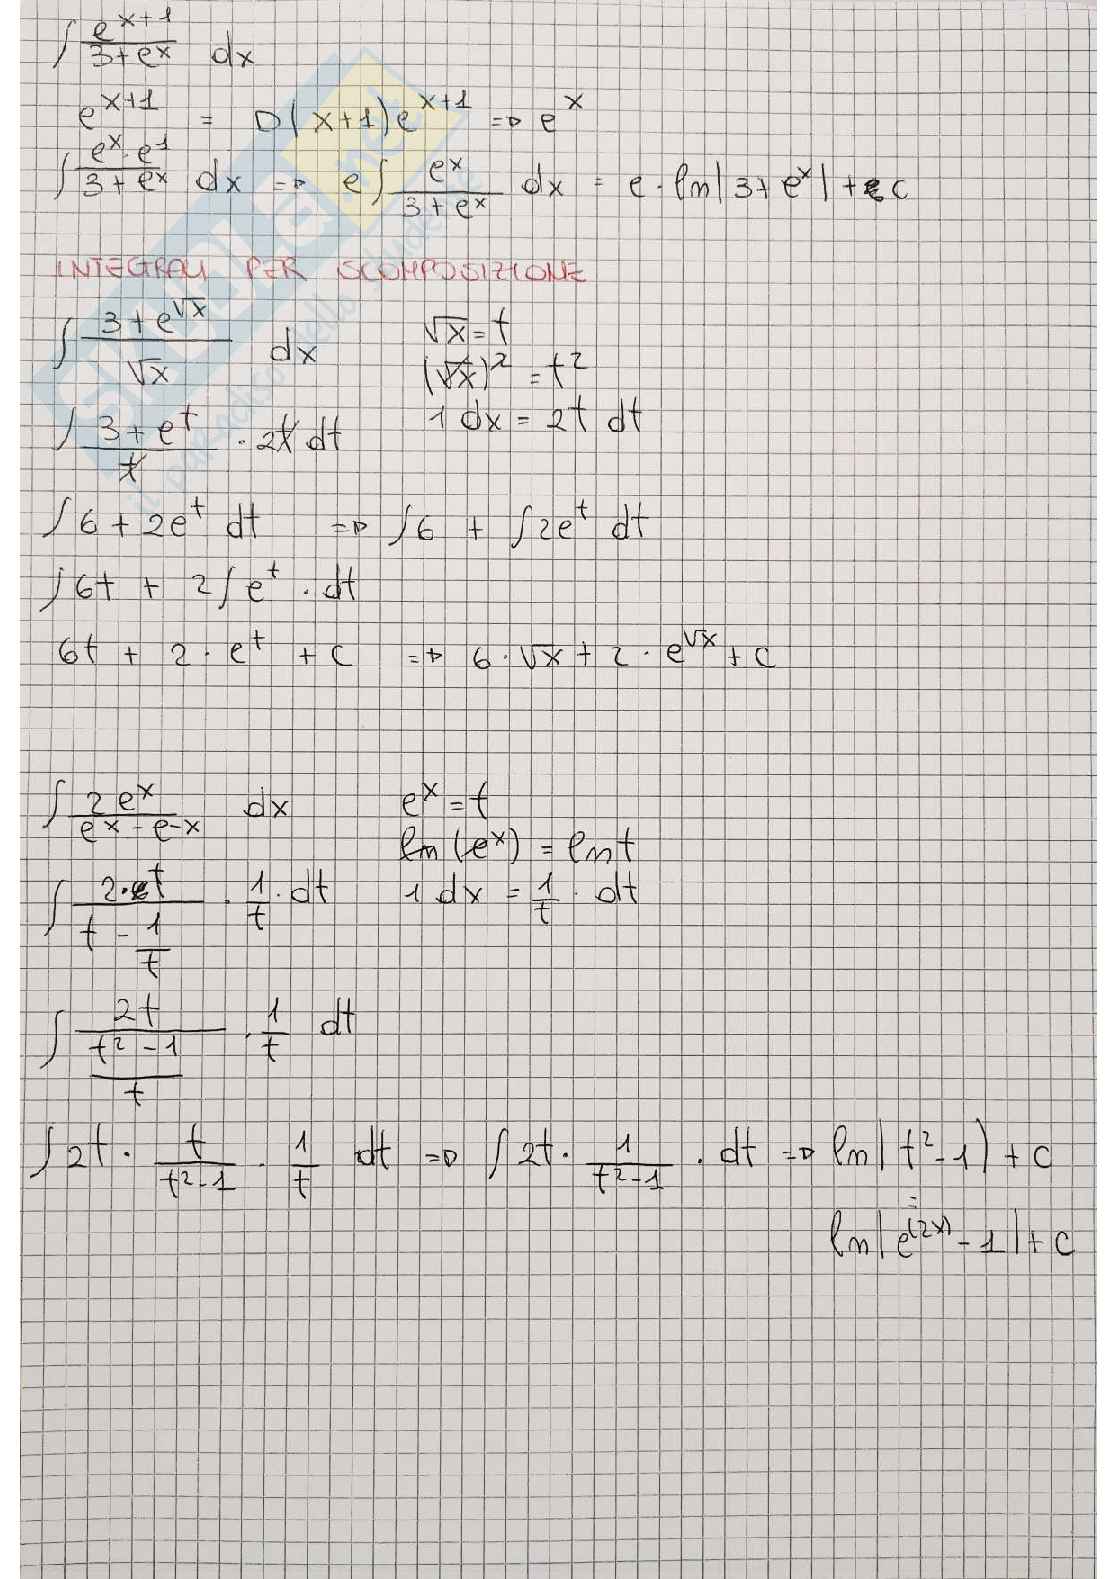 ∫ e^(x+1)/(3+e^x) dx
e^(x+1) = D(x+1)e^(x+1) => e^x
∫ (e^x·e^1)/(3+e^x) dx => e∫ e^x/(3+e^x) dx = e·ln|3+e^x|+c
INTEGRALI PER SCOMPOSIZIONE
∫ (3+e^√x)/√x dx √x=t
(√x)^2 = t^2
1 dx = 2t dt
∫ (3+e^t)/t · 2t dt
∫6+2e^t dt => ∫6 + ∫2e^t dt
∫6t + 2∫e^t · dt
6t + 2·e^t + c => 6·√x+2·e^√x+c
∫ 2e^x/(e^x-e-x) dx e^x=t
ln(e^x) = lnt
∫ 2·t/(t-1/t) · 1/t · dt 1 dx = 1/t · dt
∫ 2t/((t^2-1)/t) · 1/t dt
∫2t · t/(t^2-1) · 1/t dt => ∫2t · 1/(t^2-1) · dt => ln|t^2-1|+c
=
ln|e^(2x)-1|+c
SKUOLA.net
il paradiso dello studente